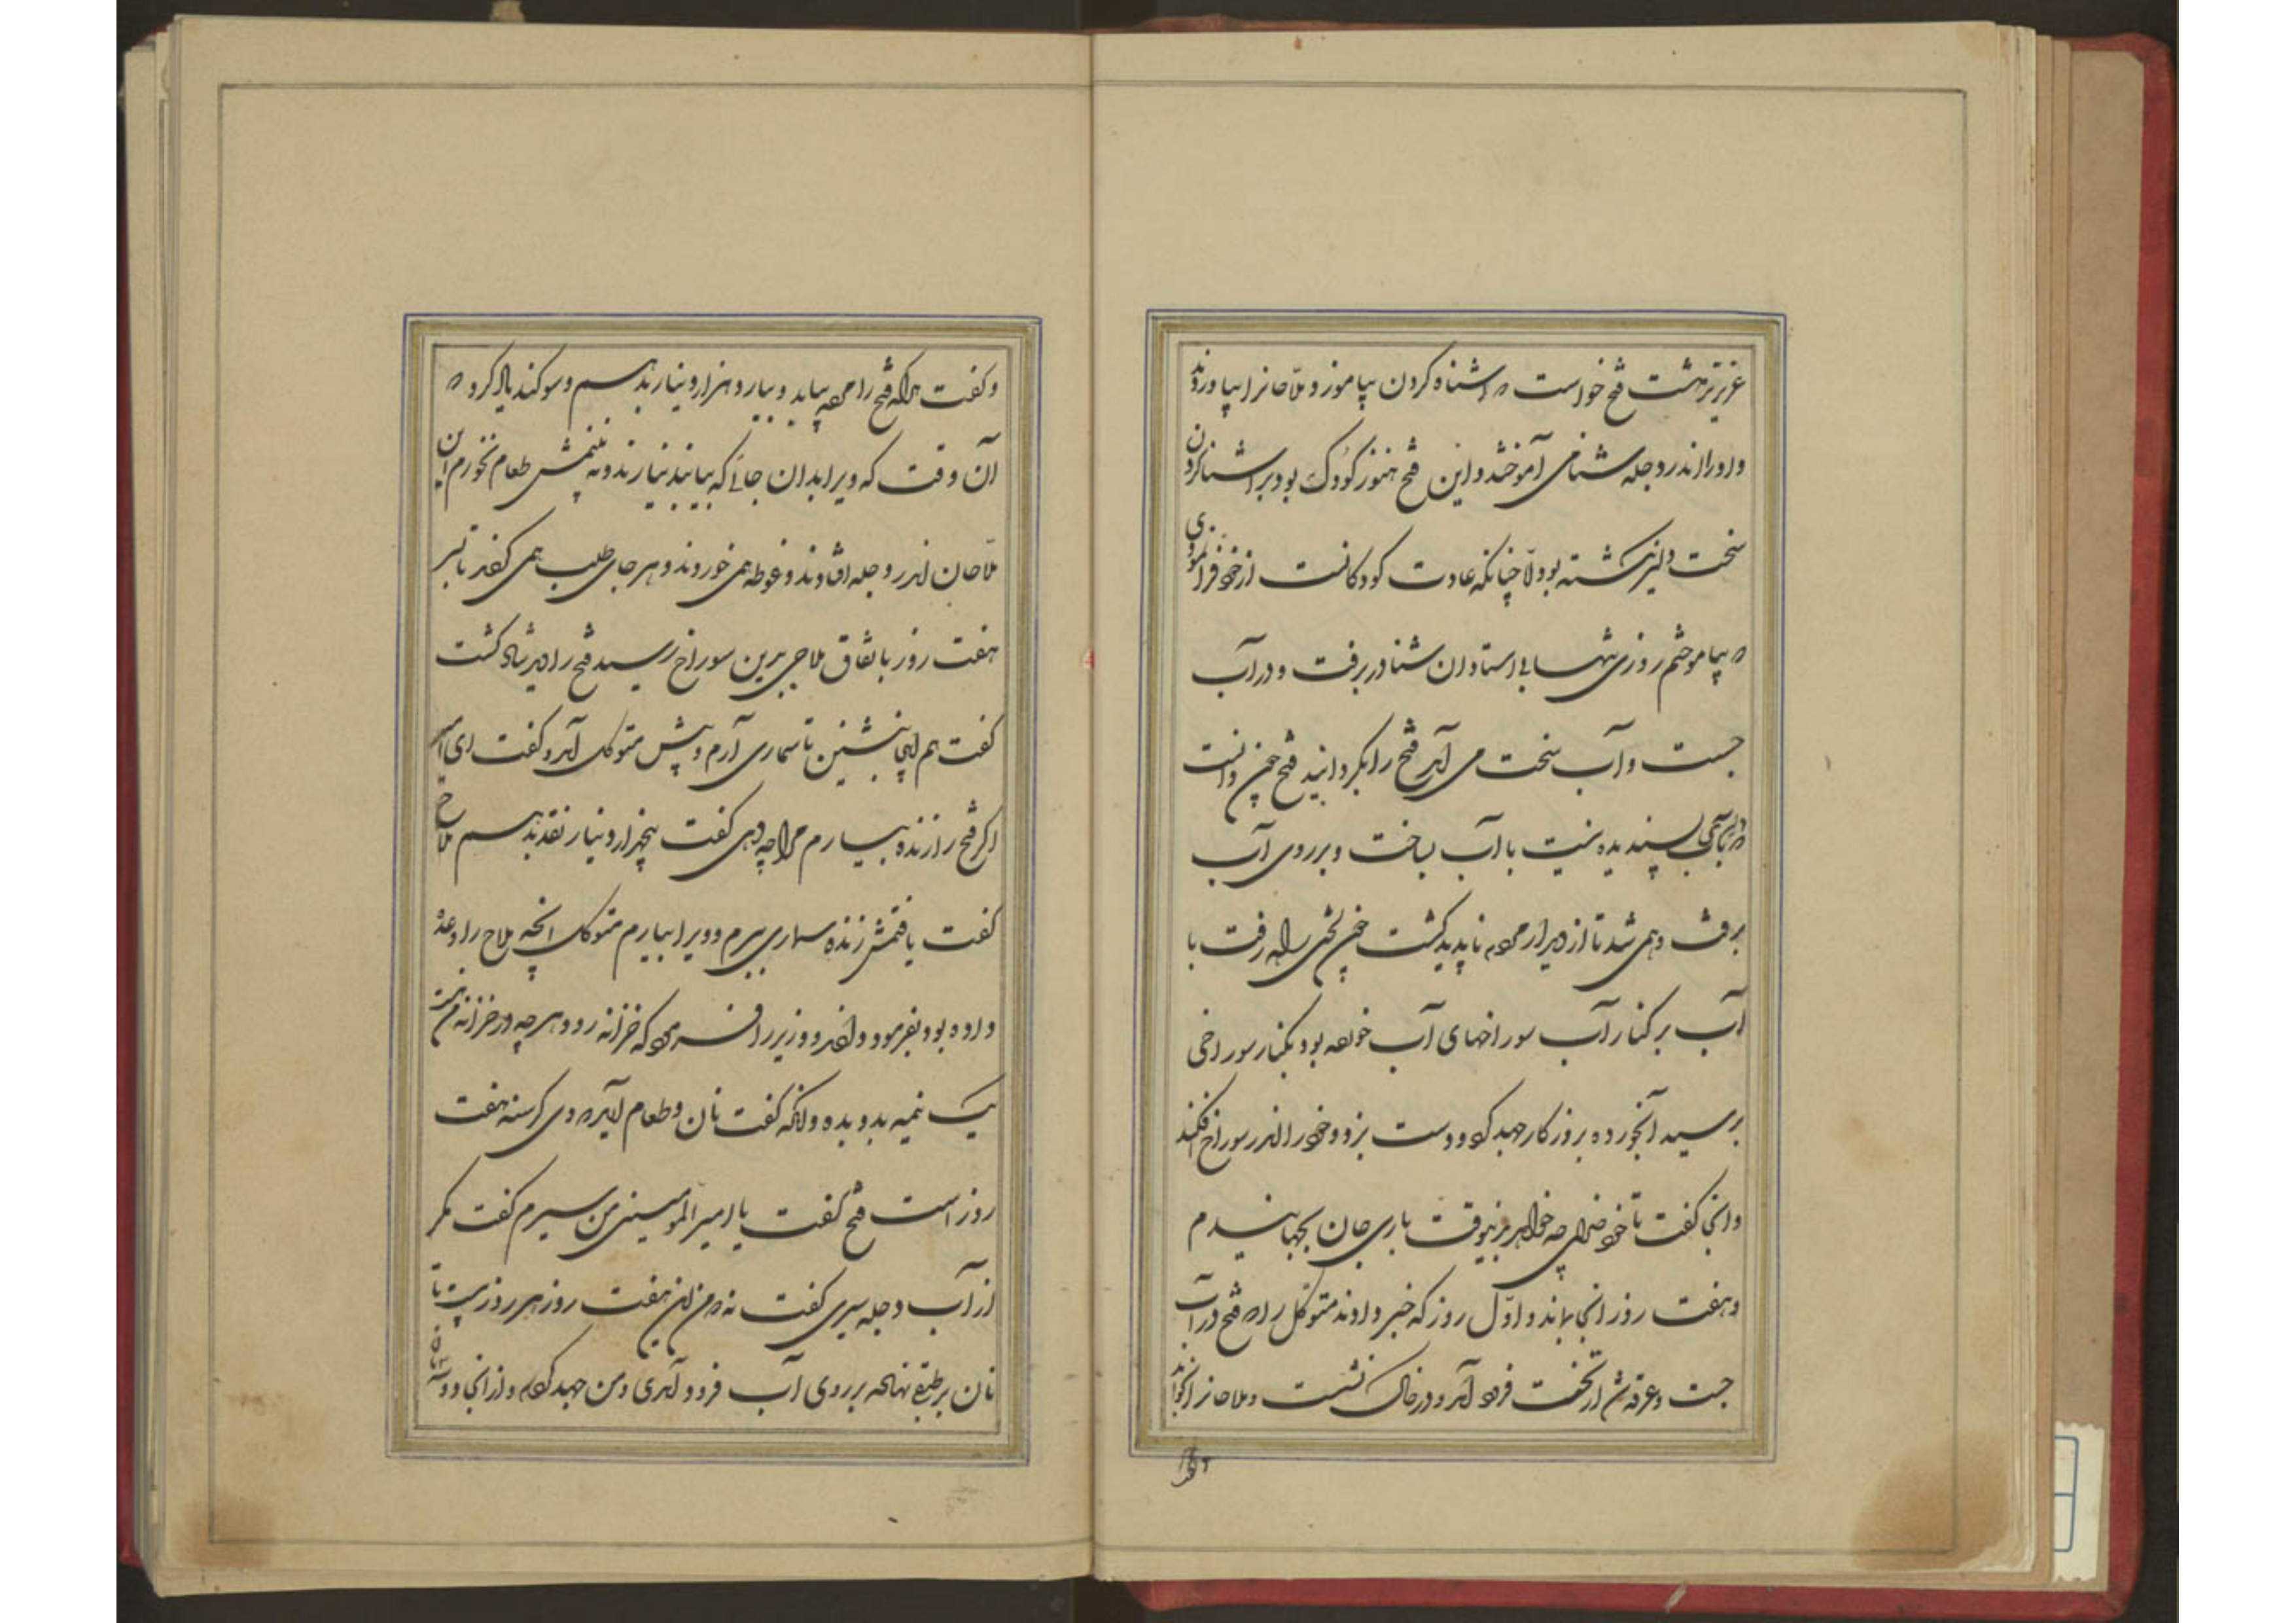 عزیزتر داشت فتح خواست که اشناه کردن بیاموزد و ملاحانرا بیاوردند
و او را اندر دجله شنا می آموختند و این فتح هنوز کودک بود و بر اشنا کردن
سخت دلیر نگشته بود و لا چنانکه عادت کودکانست از خود فرا نمودی
که بیاموختم روزی تنها بی استادان شنا در برفت و در آب
جست و آب سخت می آمد فتح را بگردانید فتح چون دانست
که با آب پسندیده نیست با آب بساخت و بر روی آب
برفت و همی شد تا از دیدار مردم ناپدید گشت چون لختی راه رفت با
آب بر کنار آب سوراخهای آب خورده بود بکنار سوراخی
برسید آبخورده بروزگار جهد کرد و دست بزد و خود را اندر سوراخ افکند
و انجا گفت تا خود خدای چه خواهد بدین وقت باری جان بجهانیدم
و هفت روز انجا بماند و اوّل روز که خبر دادند متوکل را که فتح در آب
جست و غرقه شد از تخت فرود آمد و در خاک نشست و ملاحانرا بخواند
و گفت هر که فتح را مرده بیابد و بیارد هزار دینار بدهم و سوگند یاد کرد که
آن وقت که ویرا بدان حالی که بیابند نیارند و نه بینمش طعام نخورم این
ملاحان اندر دجله افتادند و غوطه همی خوردند و هر جای طلب همی کردند تا سر
هفت روز باتفاق ملاحی برین سوراخ رسید فتح را دید شاد گشت
گفت هم اینجا بنشین تا سماری آرم و پیش متوکل آمد و گفت ای امیر
اگر فتح را زنده بیارم مرا چه دهی گفت پنجهزار دینار نقد بدهم ملاح
گفت یافتمش زنده سماری ببرم و ویرا بیارم متوکل انچه ملاح را وعده
داده بود بفرمود دادند و وزیر را فرمود که خزانه رو و هر چه در خزانه من است
یک نیمه بدو بده و انگه گفت نان و طعام آرید که وی گرسنه هفت
روز است فتح گفت یا امیر المومنین من سیرم گفت مگر
از آب دجله سیری گفت نه که من این هفت روز هر روز بیست تا
نان بر طبقی نهاده بر روی آب فرود آمدی و من جهد کردم و از انجا دو سه